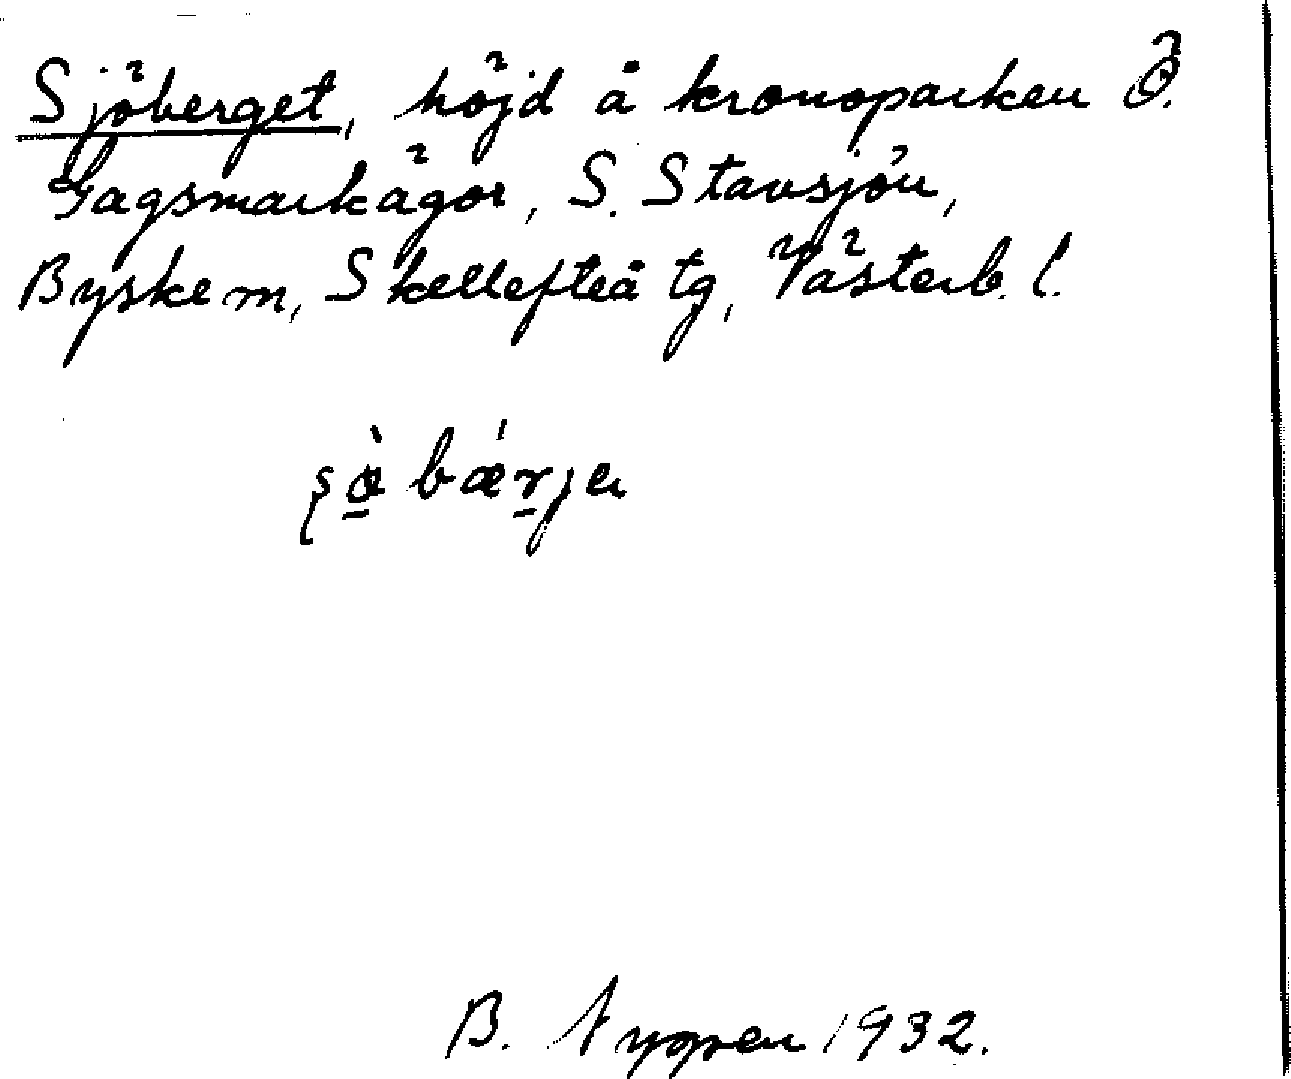 Sjöberget, höjd å kronoparken Ö.
Gagsmarkågor, S. Stavsjön,
Byske m, Skellefteå tg, Västerb. l.
ʂø̀ bǽrjɐ
B. Nygren 1932.